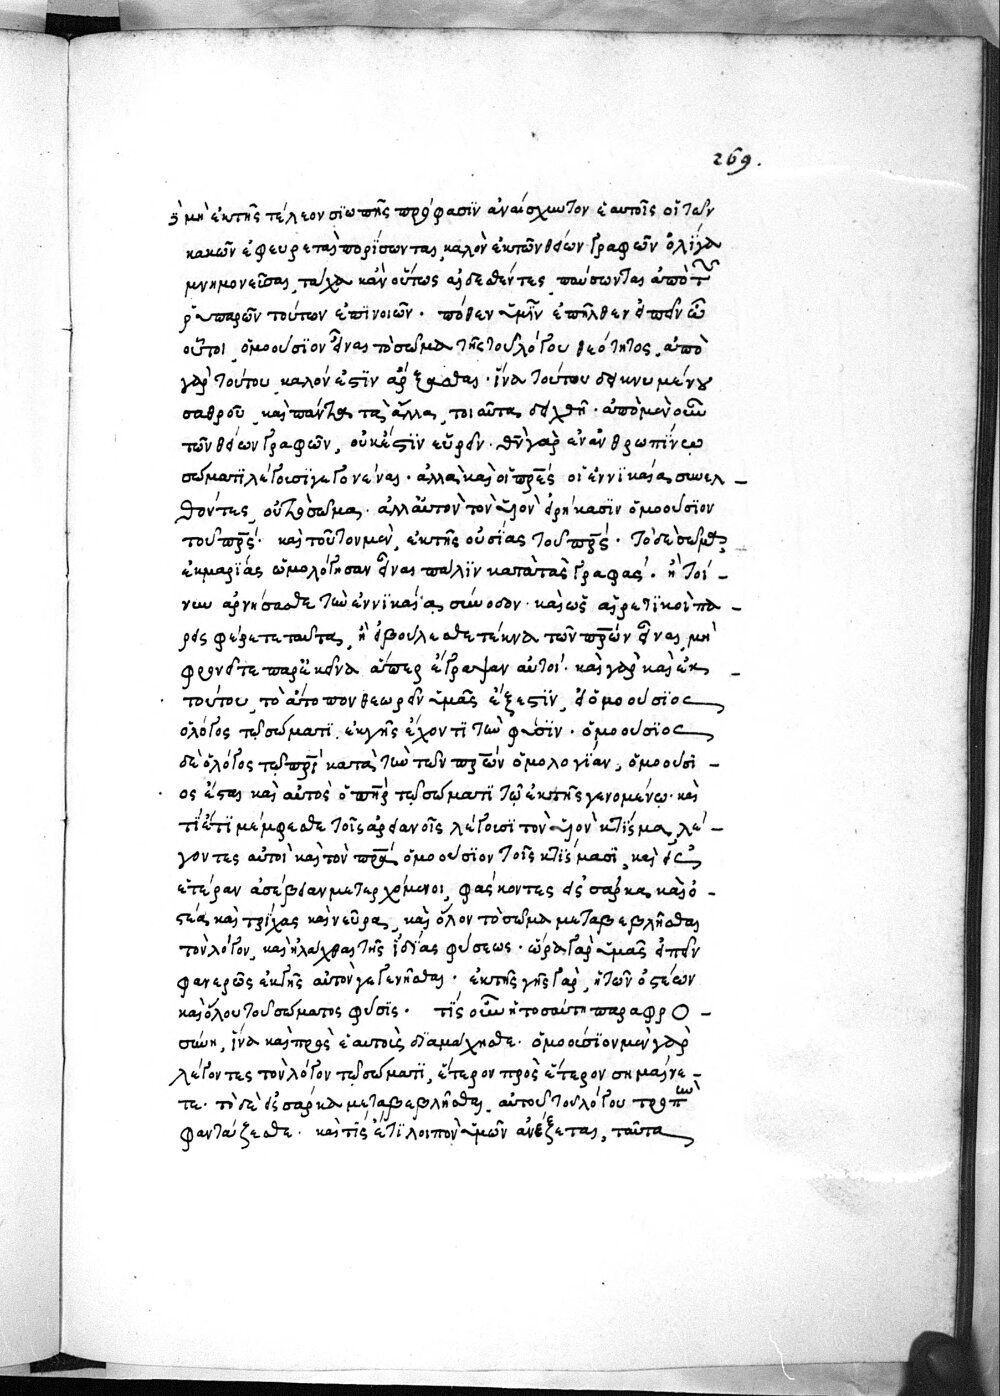 269.
ἢ μὴ ἐκ τῆς τέλεον σϊωπῆς πρόφασϊν ἀναίσχυντον ἑαυτοῖς οἱ τῶν
κακῶν ἐφευρεταὶ πορΐσωνται, καλὸν ἐκ τῶν θείων γραφῶν ὀλΐγα
μνημονεῦσαι, τάχα κἂν οὕτως αἰδεσθέντες παύσωνται ἀπὸ τῶν
ῥυπαρῶν τούτων ἐπινοιῶν. πόθεν ὑμῖν ἐπῆλθεν εἰπεῖν ὦ
οὗτοι, ὁμοούσιον εἶναι τὸ σῶμα τῆς τοῦ λόγου θεότητος, ἀπὸ
γὰρ τούτου καλόν ἐστϊν ἄρξασθαι. ἵνα τούτου δεικνυμένου
σαθροῦ, καὶ πάντα τὰ ἄλλα, τοιαῦτα δειχθῆ. ἀπὸ μὲν οὖν
τῶν θείων γραφῶν, οὐκ ἔστϊν εὑρεῖν. θεὸν γὰρ ἐν ἀνθρωπΐνῳ
σώματι λέγουσϊ γεγονέναι. ἀλλὰ καὶ οἱ πρες οἱ ἐν νϊκαίᾳ συνελ-
θόντες, οὐ τὸ σῶμα. ἀλλ' αὐτὸν τὸν υἱὸν εἰρήκασϊν ὁμοούσϊον
τοῦ πρς. καὶ τοῦτον μὲν, ἐκ τῆς οὐσίας τοῦ πρς. τὸ δὲ σῶμα,
ἐκ μαρΐας ὡμολόγησαν εἶναι πάλϊν κατὰ τὰς γραφάς. ἢ τοί-
νυν ἀρνήσασθε τὴν ἐν νϊκαίᾳ σύνοδον. καὶ ὡς αἱρετϊκοὶ πα-
ρεισφέρετε ταῦτα, ἢ εἰ βούλεσθε τέκνα τῶν πρων εἶναι, μὴ
φρονεῖτε παρ' ἐκεῖνα ἅπερ ἔγραψαν αὐτοί. καὶ γὰρ καὶ ἐκ
τούτου, τὸ ἄτοπον θεωρεῖν ὑμᾶς ἔξεστϊν, εἰ ὁμοούσϊος
ὁ λόγος τῷ σώματϊ, ἐκ γῆς ἔχοντϊ τὴν φύσϊν. ὁμοούσϊος
δὲ ὁ λόγος τῷ πρι κατὰ τὴν τῶν πρων ὁμολογΐαν, ὁμοουσϊ-
ος ἔσται καὶ αὐτὸς ὁ πηρ τῷ σώματϊ τῷ ἐκ γῆς γενομένῳ. καὶ
τΐ ἔτϊ μέμφεσθε τοῖς ἀρειανοῖς λέγουσϊ τὸν υἱὸν κτΐσμα, λέ-
γοντες αὐτοὶ καὶ τὸν πρα ὁμοούσϊον τοῖς κτΐσμασϊ, καὶ εἰς
ἑτέραν ἀσέβειαν μετερχόμενοι, φάσκοντες εἰς σάρκα καὶ ὀ-
στέα καὶ τρΐχας καὶ νεῦρα, καὶ ὅλον τὸ σῶμα μεταβεβλῆσθαι
τὸν λόγον, καὶ ἠλλάχθαι τῆς ἰδΐας φύσεως. ὥρα γὰρ ὑμᾶς εἰπεῖν
φανερῶς ἐκ γῆς αὐτὸν γεγενῆσθαι. ἐκ τῆς γῆς γὰρ, ἡ τῶν ὀστέων
καὶ ὅλου τοῦ σώματος φύσϊς. τΐς οὖν ἡ τοσαύτη παραφρο-
σύνη, ἵνα καὶ πρὸς ἑαυτοὺς διαμάχησθε. ὁμοούσϊον μὲν γὰρ
λέγοντες τὸν λόγον τῷ σώματϊ, ἕτερον πρὸς ἕτερον σημαίνε-
τε. τὸ δὲ εἰς σάρκα μεταβεβλῆσθαι, αὐτοῦ τοῦ λόγου τροπὴν
φαντάζεσθε. καὶ τΐς ἔτϊ λοιπὸν ὑμῶν ἀνέξεται, ταῦτα